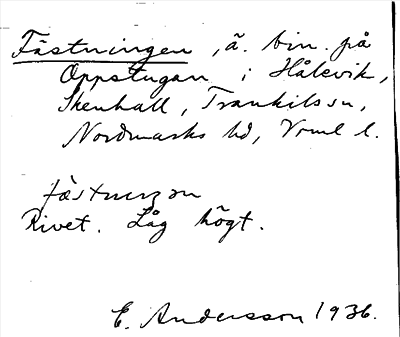 Fästningen, ä. bin. på
Oppstugan i Hålevik,
Skenhall, Trankils sn,
Nordmarks hd, Vrml l.
fästnıŋən
Rivet. Låg högt.
E. Andersson 1936.